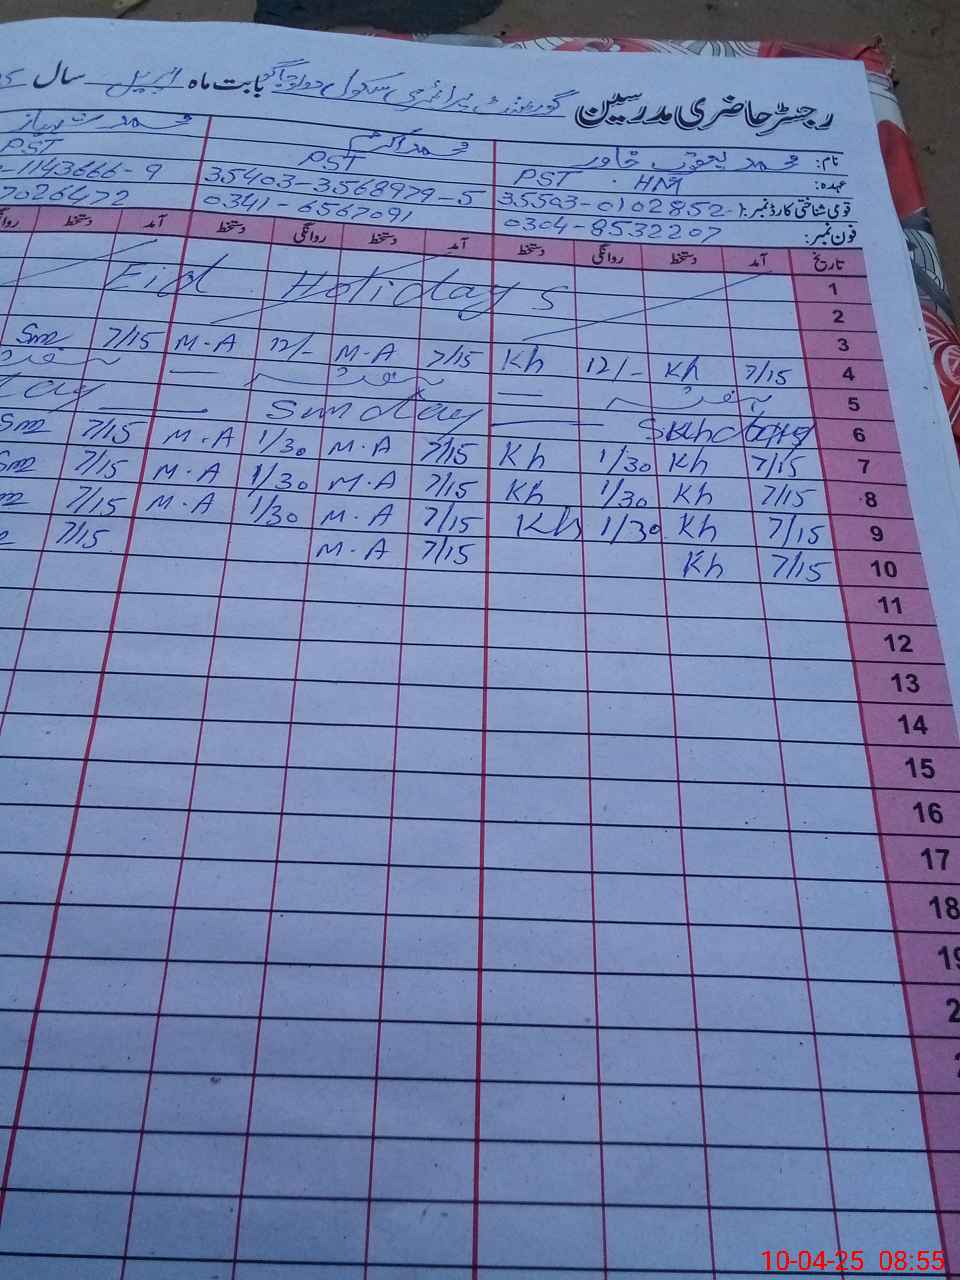 رجسٹر حاضری مدرسین گورنمنٹ پرائمری سکول بابت ماہ اپریل سال
نام: محمد یعقوب خاور محمد اکرم محمد شہباز
عہدہ: PST . HM PST PST
قومی شناختی کارڈ نمبر: 35503-0102852-1 35403-3568979-5 -1143666-9
فون نمبر: 0304-8532207 0341-6567091 7026472
تاریخ آمد دستخط روانگی دستخط آمد دستخط روانگی دستخط آمد دستخط
1
2 Eid Holidays
3
4 7/15 Kh 12/- Kh 7/15 M.A 12/- M.A 7/15 Sm
5
6 Sunday Sunday
7 7/15 Kh 1/30 Kh 7/15 M.A 1/30 M.A 7/15 Sm
8 7/15 Kh 1/30 Kh 7/15 M.A 1/30 M.A 7/15 Sm
9 7/15 Kh 1/30 Kh 7/15 M.A 1/30 M.A 7/15
10 7/15 Kh 7/15 M.A 7/15
11
12
13
14
15
16
17
18
10-04-25 08:55